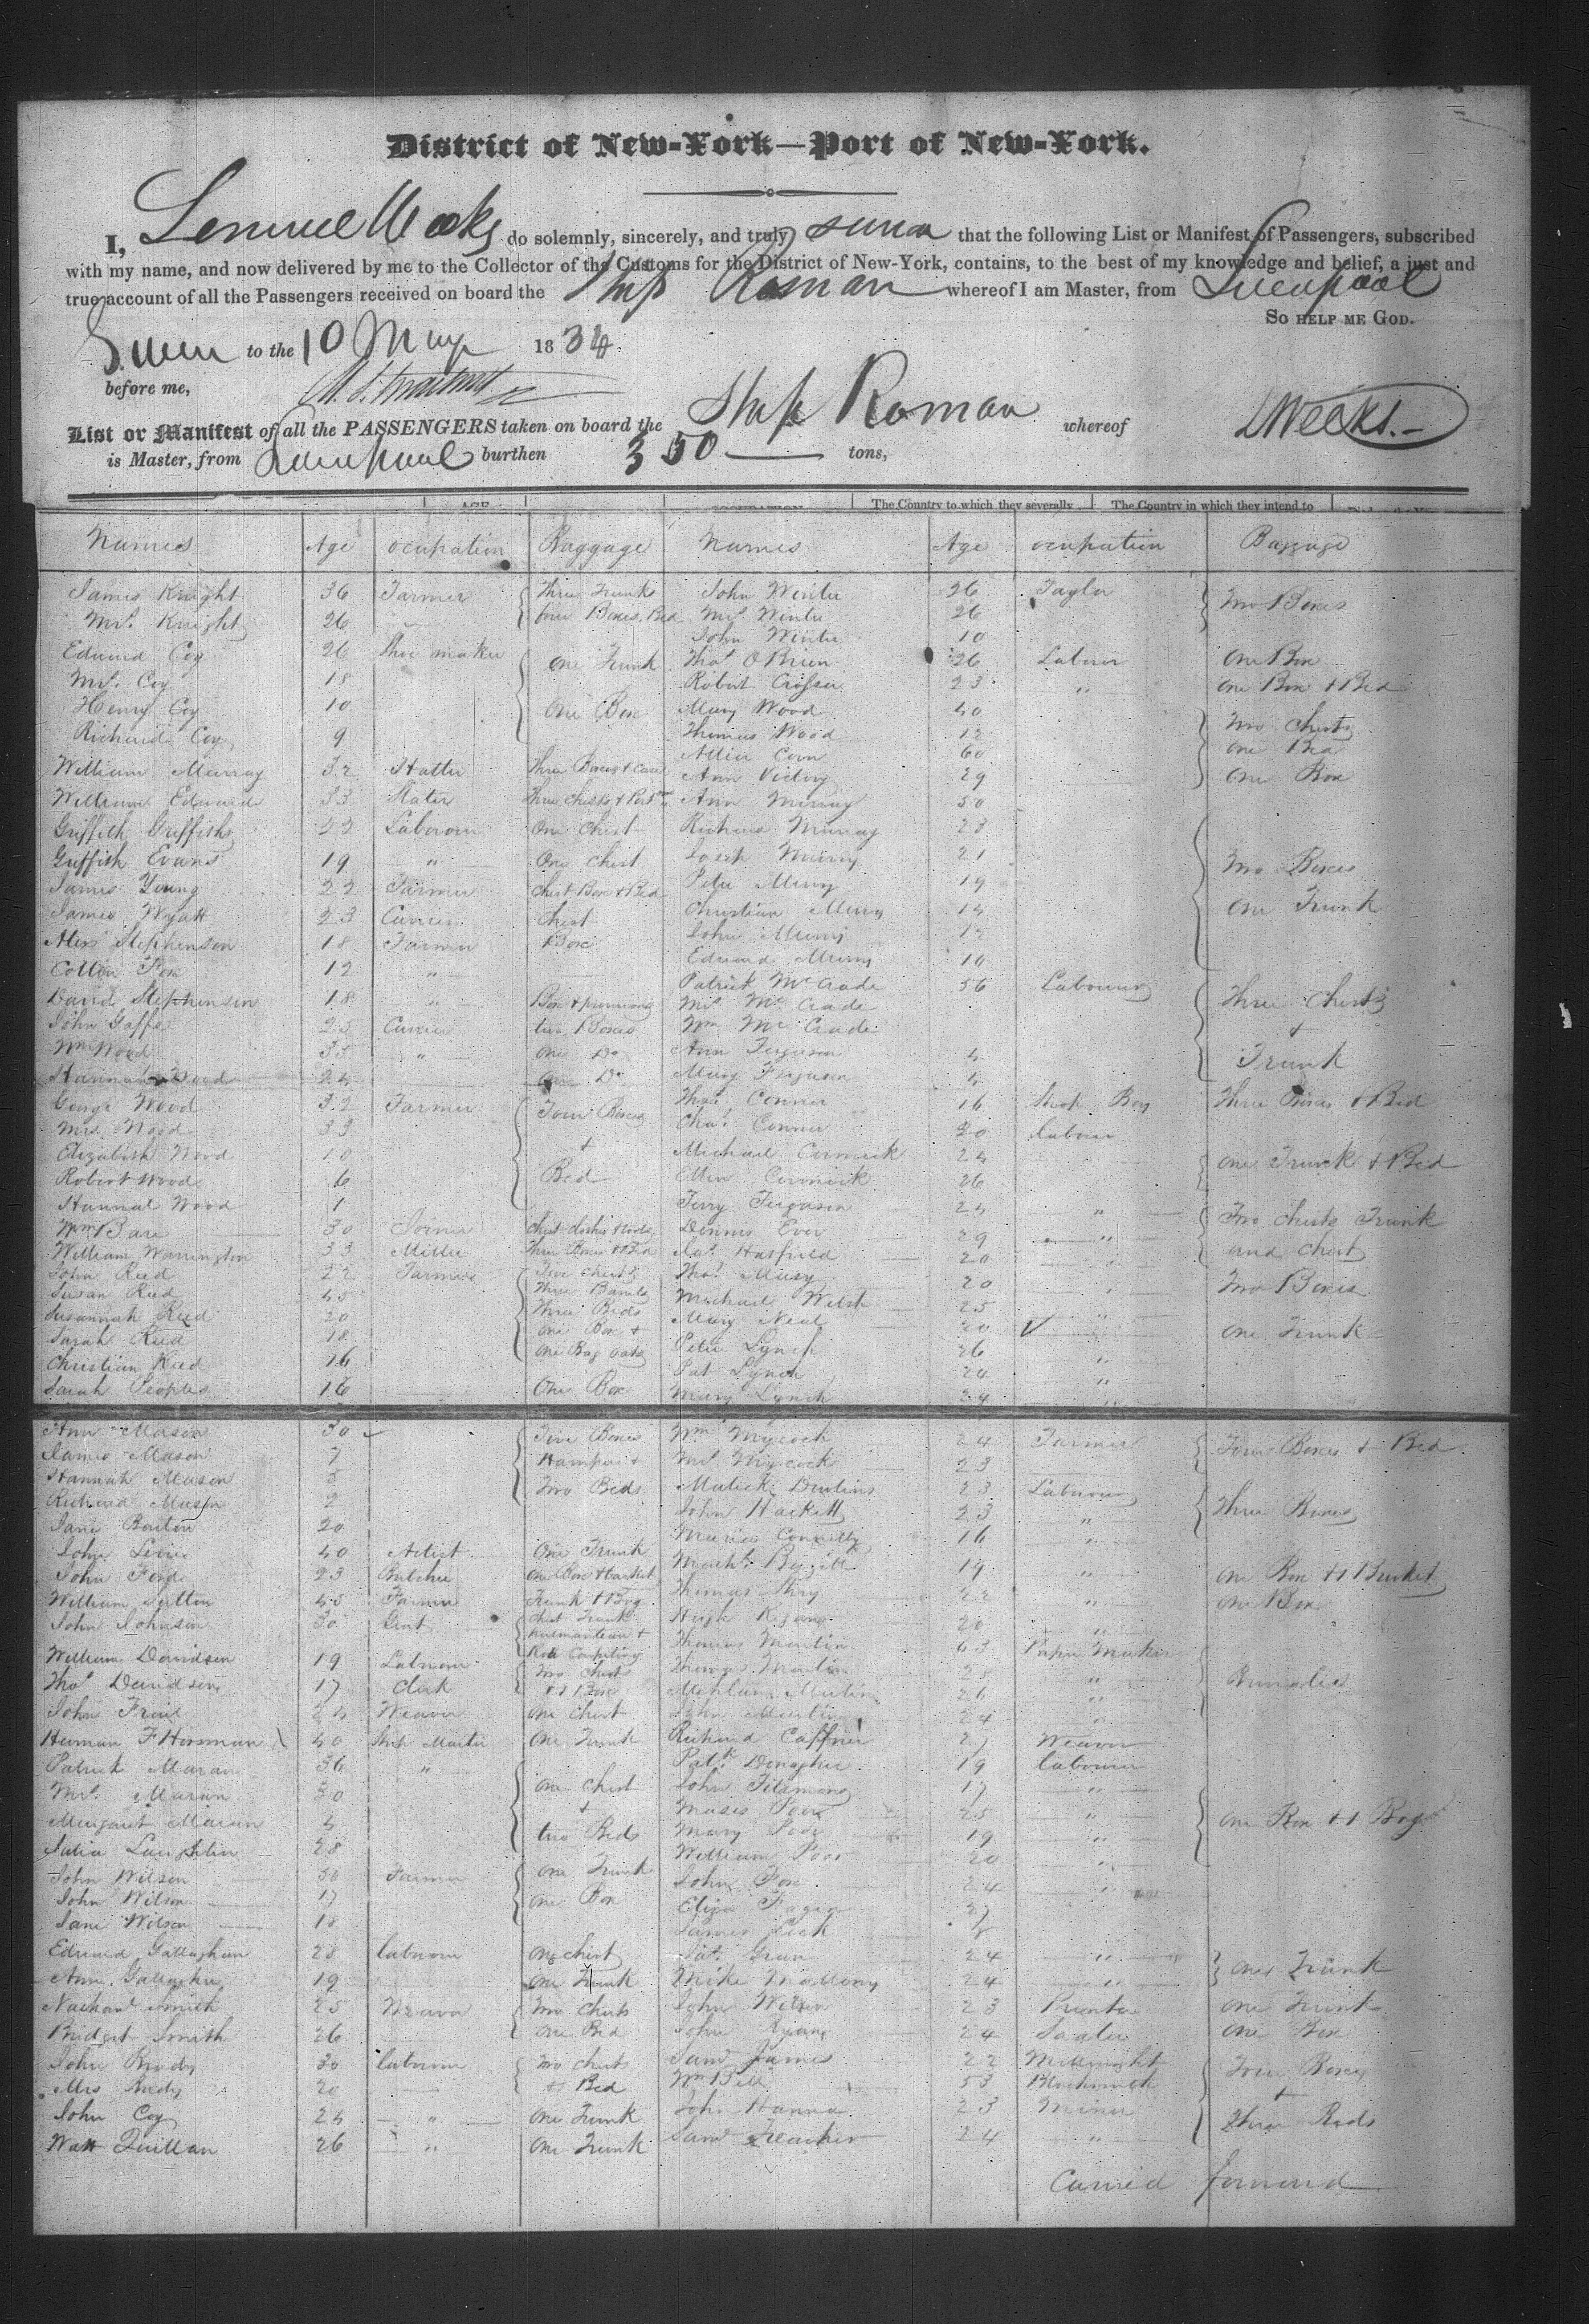 District of New-York—Port of New-York.
I, Lemuel Weeks do solemnly, sincerely, and truly swear that the following List or Manifest of Passengers, subscribed
with my name, and now delivered by me to the Collector of the Customs for the District of New-York, contains, to the best of my knowledge and belief, a just and
true account of all the Passengers received on board the Ship Roman whereof I am Master, from Liverpool
So help me God.
Sworn to the 10 May 1834.
before me,
List or Manifest of all the PASSENGERS taken on board the Ship Roman whereof L Weeks.
is Master, from Liverpool burthen 350 tons,
AGE OCCUPATION The Country to which they severally The Country in which they intend to
Names Age ocupation Baggage Names Age ocupation Baggage
James Knight 36 Farmer Three Trunks
Mrs. Knight 26 four Boxes, Bed
Edward Coy 26 Shoe maker One Trunk
Mrs. Coy 18
Henry Coy 10 One Box
Richard Coy 9
William Murray 32 Hatter
William Edward 33 Slater Three Chests
Griffith Griffiths 22 Labourer One Chest
Griffith Evans 19 " One Chest
James Young 22 Farmer Chest Box & Bed
James Wyatt 23 Currier Chest
Alexr Stephenson 18 Farmer Box
Cotton Fox 12 "
David Stephenson 18 " Box & provisions
John Gaffa 25 Currier two Boxes
Wm Wood 35 " One Do
Hannah Wood 24 One Do
George Wood 32 Farmer Four Boxes
Mrs. Wood 33 +
Elizabeth Wood 10
Robert Wood 6 Bed
Hannah Wood 1
Wm Bare 30 Joiner
William Warrington 33 Miller Three Boxes & Bed
John Reed 22 Farmer Five Chests
Susan Reed 45 Three Barrels
Susannah Reed 20 Three Beds
Sarah Reed 18 One Box &
Christian Reed 16 One Bag oats
Sarah Peoples 16 One Box
Ann Mason 30 Five Boxes
James Mason 7 Hamper +
Hannah Mason 5 Two Beds
Richard Mason 2
Jane Boston 20
John 40 Artist One Trunk
John Ford 23 Butcher One Box & basket
William Sutton 45 Farmer Trunk & 1 Bag
John Johnson 30 Gent Chest Trunk
Portmanteau +
William Davidson 19 Labourer Two Chests
Thos Davidson 17 Clerk & 1 Box
John 24 Weaver One Chest
Herman F Horsman 40 Ship Master One Trunk
Patrick Maran 36 " One Chest
Mrs. Maran 30 +
Margaret Maran 4 two Beds
Julia Laughlin 28
John Wilson 50 Farmer One Trunk
John Wilson 17 One Box
Jane Wilson 18
Edward Gallaghan 28 labourer One chest
Ann Gallagher 19 One Trunk
Nathanl Smith 25 Weaver Two Chests
Bridget Smith 26 One Bed
John Brody 30 labourer Two chests
Mrs Brody 20 & 1 Bed
John Coy 24 " One Trunk
Watt Quillan 26 " One Trunk
John Winter 26 Taylor Two Boxes
Mrs. Winter 26
John Winter 10
Thos. O Brien 26 Labourer One Box
Robert Crosser 23 " One Box & Bed
Mary Wood 40 Two Chests
Thomas Wood 12 One Bed
60 One Box
Ann Victory 29
Ann Murray 50
Richard Murray 23
Joseph Murray 21 Two Boxes
Peter Murray 19
Christian Murray 14 One Trunk
John Murray 12
Edward Murray 10
Patrick McCade 56 Labourer Three Chests
Mrs McCade +
Wm McCade Trunk
Ann Ferguson 4
Mary Ferguson
Thos. Conner 16 Shop Boy Three Boxes & Bed
Chas. Conner 20 labour
Michael Cormick 24 One Trunk & Bed
Ellen Cormick 26
Terry Ferguson 24 " Two Chests Trunk
Dennis Ever 29 " and Chest
Jas. Hatfield 20 "
Thos. Murry 20 " Two Boxes
Michael Welch 25 "
Mary Neal 20 " One Trunk
Peter Lynch 26 "
Pat Lynch 24 "
Mary Lynch 24 "
Wm Mycock 24 Farmer Four Boxes & Bed
Mrs. Mycock 23
23 Labourer Three Boxes
John Hackett 23 "
Maria Connelly 16 "
19 " One Box & 1 Basket
Thomas 22 " One Box
Hugh 20 "
Thomas Martin 63 Paper Maker
Thomas Martin 25 " Bundles
Martin 26 "
John Martin 24 "
Richard Caffrier 27 Weaver
Patk. Donagher 19 labourer
John Fitsimons 17 "
Moses Poor 25 " One Box & 1 Bag
Mary Poor 19 "
William Poor 20 "
John Fox 24 "
Eliza Fagan 27
James
Pat. 24 " One Trunk
Mike Mallony 24 "
John Wilson 23 Printer One Trunk
John Ryan 24 One Box
Saml James 22 Millwright Four Boxes
Wm Bell 53 Blacksmith +
John Hanna 23 Miner Three Beds
Saml 24 "
Carried forward